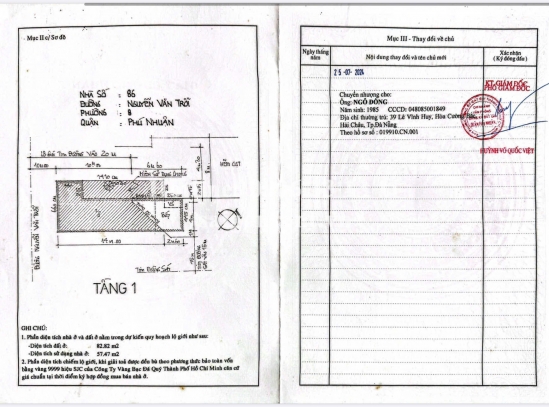 Mục II c/ Sơ đồ
NHÀ SỐ 86
ĐƯỜNG NGUYỄN VĂN TRỖI
PHƯỜNG 8
QUẬN PHÚ NHUẬN
HẺM CỤT
86
ĐƯỜNG NGUYỄN VĂN TRỖI
TẦNG 1
GHI CHÚ:
1. Phần diện tích nhà ở và đất ở nằm trong dự kiến quy hoạch lộ giới như sau:
-Diện tích đất ở: 82.82 m2
-Diện tích sử dụng nhà ở: 57.47 m2
2. Phần diện tích chiếm lộ giới, khi giải toả được đền bù theo phương thức bảo toàn vốn
bằng vàng 9999 hiệu SJC của Công Ty Vàng Bạc Đá Quý Thành Phố Hồ Chí Minh căn cứ
giá chuẩn tại thời điểm ký hợp đồng mua bán nhà ở.
Mục III - Thay đổi về chủ
Ngày tháng
năm
Nội dung thay đổi và tên chủ mới
Xác nhận
(Ký đóng dấu)
25-07-2024
KT.GIÁM ĐỐC
PHÓ GIÁM ĐỐC
Chuyển nhượng cho:
Ông: NGÔ ĐÔNG
Năm sinh: 1985 CCCD: 048085001849
Địa chỉ thường trú: 39 Lê Vĩnh Huy, Hòa Cường
Hải Châu, Tp.Đà Nẵng
Theo hồ sơ số: 019910.CN.001
HUỲNH VÕ QUỐC VIỆT